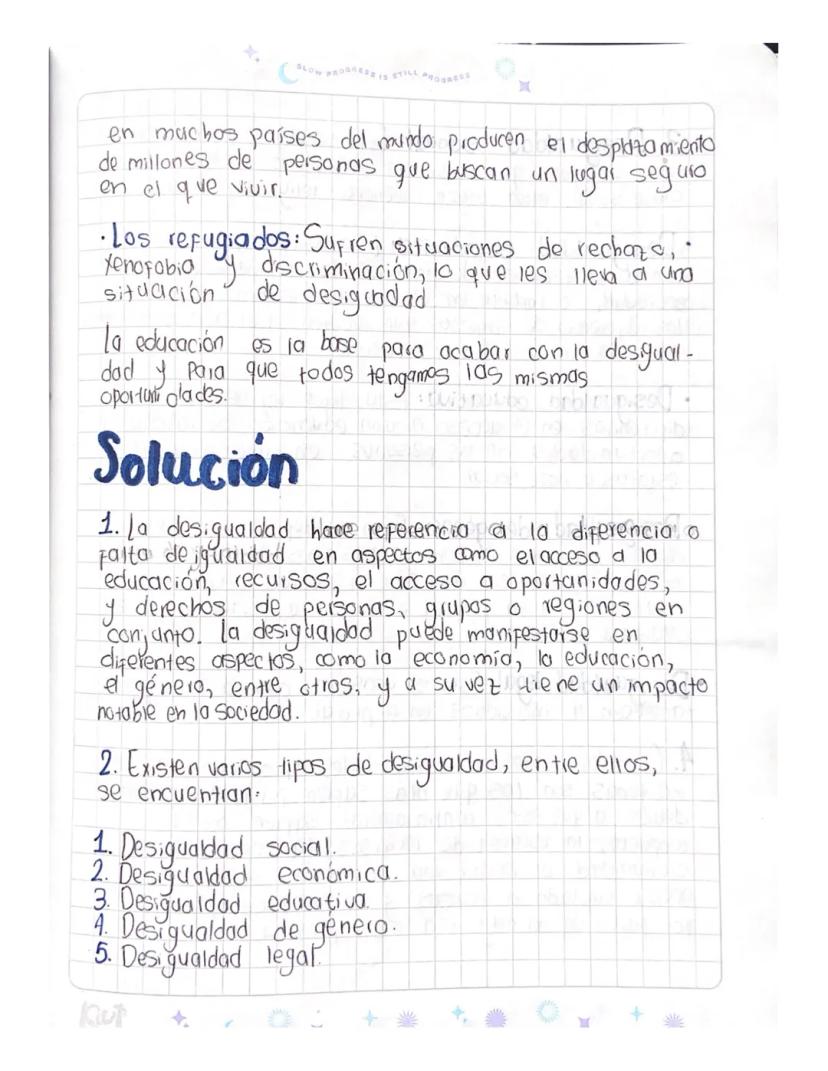 SLOW PROGRESS IS STILL PROGRESS
en muchos países del mundo producen el desplazamiento
de millones de personas que buscan un lugar seguro
en el que vivir.
·Los refugiados: Sufren situaciones de rechazo,
xenofobia y discriminación, lo que les lleva a una
situación de desigualdad
la educación es la base para acabar con la desigual-
dad y para que todos tengamos las mismas
oportunidades.
Solución
1. la desigualdad hace referencia a la diferencia o
falta de igualdad en aspectos como el acceso a la
educación, recursos, el acceso a oportunidades,
y derechos de personas, grupos o regiones en
conjunto. la desigualdad puede manifestarse en
diferentes aspectos, como la economía, la educación,
el género, entre otros, y a su vez tiene un impacto
notable en la sociedad.
2. Existen varios tipos de desigualdad, entre ellos,
se encuentran:
1. Desigualdad social.
2. Desigualdad económica.
3. Desigualdad educativa.
4. Desigualdad de género.
5. Desigualdad legal.